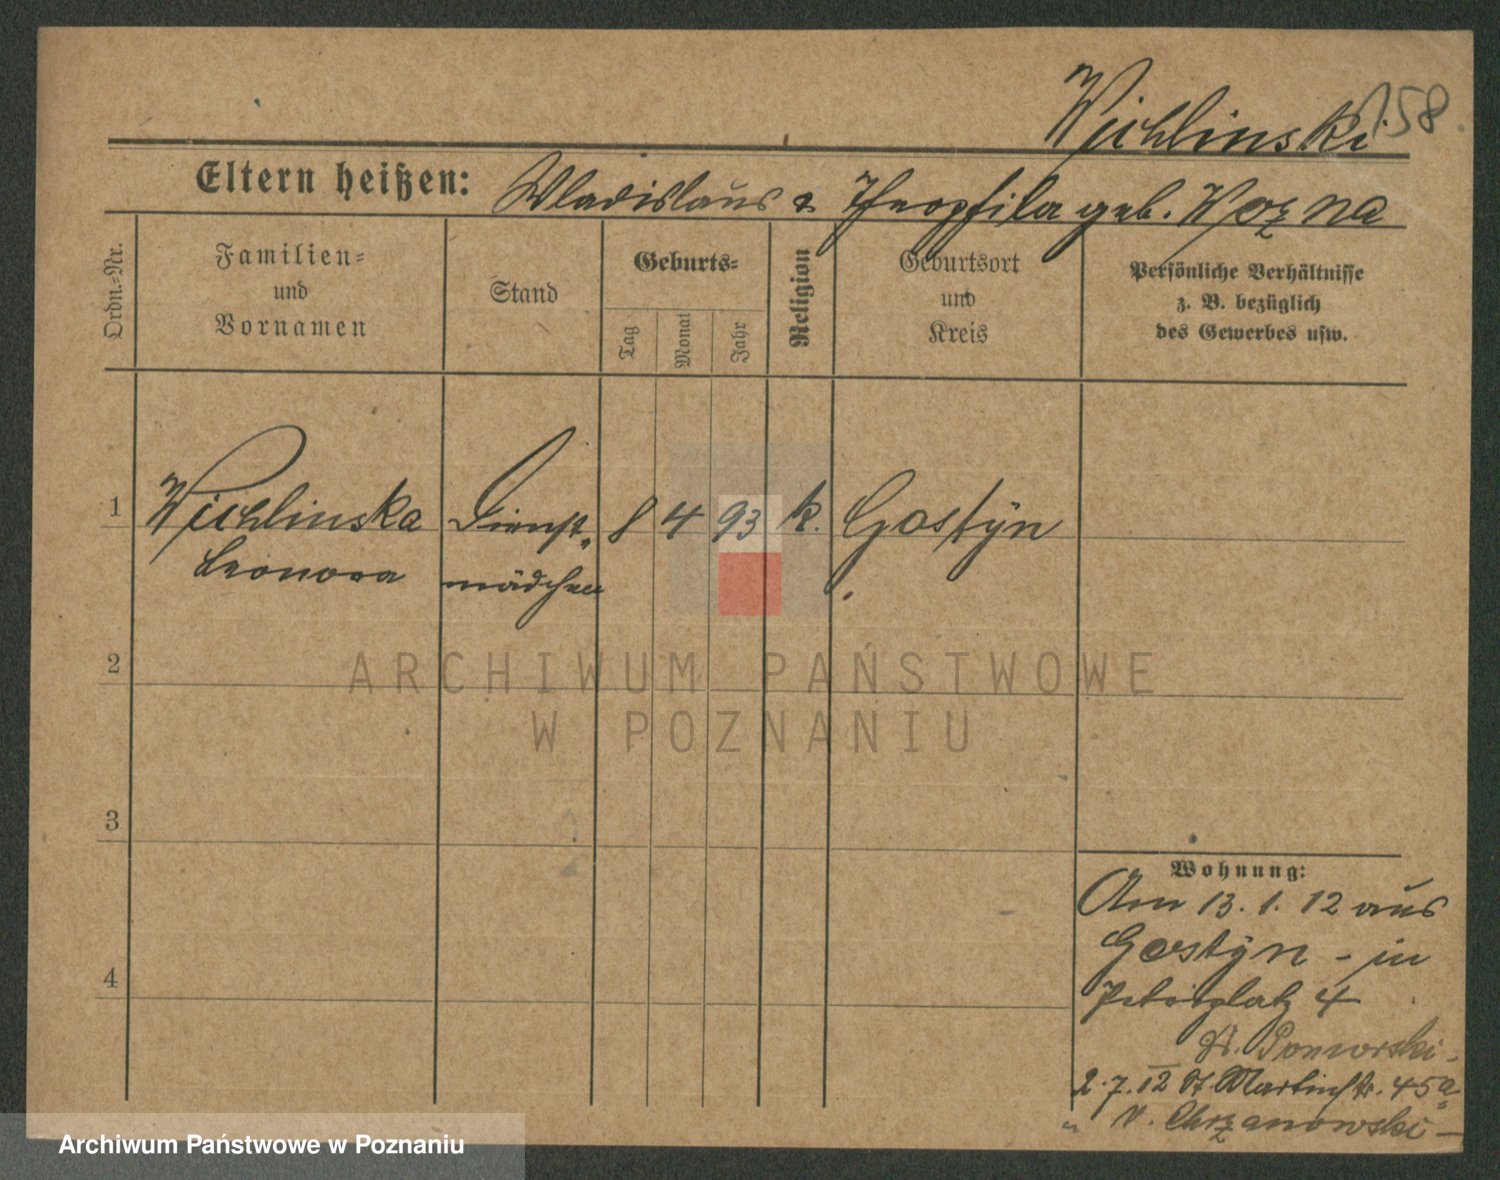 Wichlinski
158.
Eltern heißen: Wladislaus & Theophila geb. Wozna
Ordn.-Nr.
Familien-
und
Vornamen
Stand
Geburts-
Tag
Monat
Jahr
Religion
Geburtsort
und
Kreis
Persönliche Verhältnisse
z. B. bezüglich
des Gewerbes usw.
1 Wichlinska Dienst- 8 4 93 k. Gostÿn
Leonora mädchen
2
3
4
ARCHIWUM PAŃSTWOWE
W POZNANIU
Wohnung:
Am 13. 1. 12 aus
Gostÿn - in
Petriplatz 4
Pomorski-
2.7.12 St Martinstr. 45a
v. Chrzanowski-
Archiwum Państwowe w Poznaniu